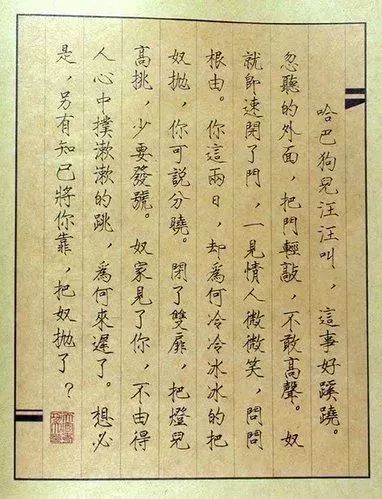 哈巴狗兒汪汪叫，這事好蹊蹺。
忽聽的外面，把門輕敲，不敢高聲。奴
就師速閉了門，一見情人微微笑，問問
根由。你這兩日，却為何冷冷冰冰的把
奴拋，你可說分曉。閉了雙扉，把燈兒
高挑，少要發號。奴家見了你，不由得
人心中撲漱漱的跳，為何來遲了。想必
是，另有知己將你靠，把奴拋了？